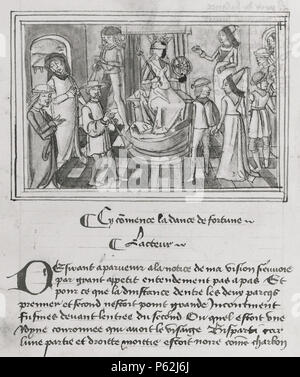 Cy comence la dance de fortune
Lacteur
Desirant a parvenir a la notice de ma vision le envoie
par grant appetit entendement pas a pas Et
pour ce que la distance dentre les deux parcqs
premier et second nestoit point grande Incontinent
fusmes devant lentree du second Ou quel eus une
Royne couronnee qui avoit le visage Disparti car
lune partie et droitte moittie estoit noire come charbon
alamy
P62J6J